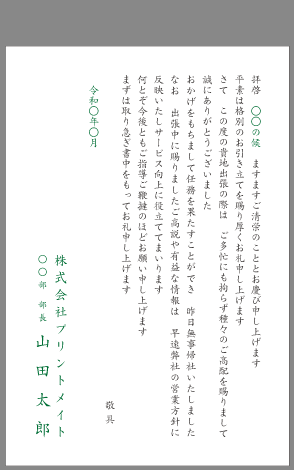 拝啓　〇〇の候　ますますご清栄のこととお慶び申し上げます
平素は格別のお引き立てを賜り厚くお礼申し上げます
さて　この度の貴地出張の際は　ご多忙にも拘らず種々のご高配を賜りまして
誠にありがとうございました
おかげをもちまして任務を果たすことができ　昨日無事帰社いたしました
なお　出張中に賜りましたご高説や有益な情報は　早速弊社の営業方針に
反映いたしサービス向上に役立ててまいります
何とぞ今後ともご指導ご鞭撻のほどお願い申し上げます
まずは取り急ぎ書中をもってお礼申し上げます
敬具
令和〇年〇月
株式会社プリントメイト
〇〇部 部長　山田太郎